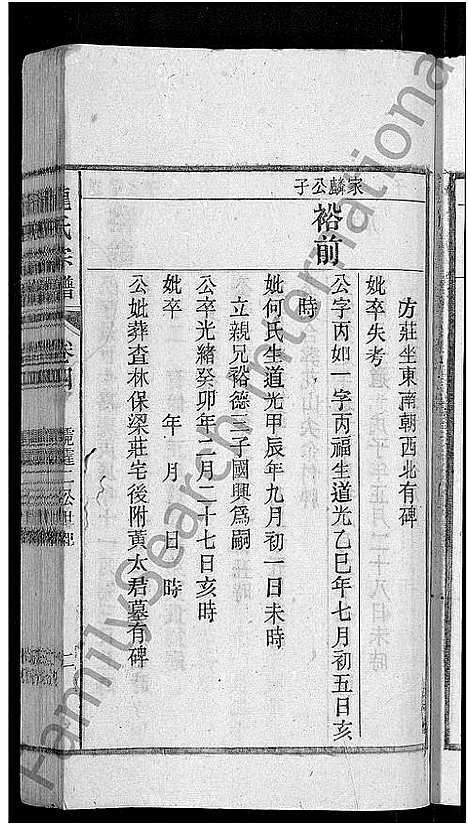 方莊坐東南朝西北有碑
妣卒失考
家麟公子
裕前
公字丙如一字丙福生道光乙巳年七月初五日亥
時
妣何氏生道光甲辰年九月初一日未時
立親兄裕德二子國興爲嗣
公卒光緒癸卯年二月二十七日亥時
妣卒 年 月 日 時
公妣葬查林保梁莊宅後附黃太君墓有碑
氏宗譜 卷四
FamilySearch International